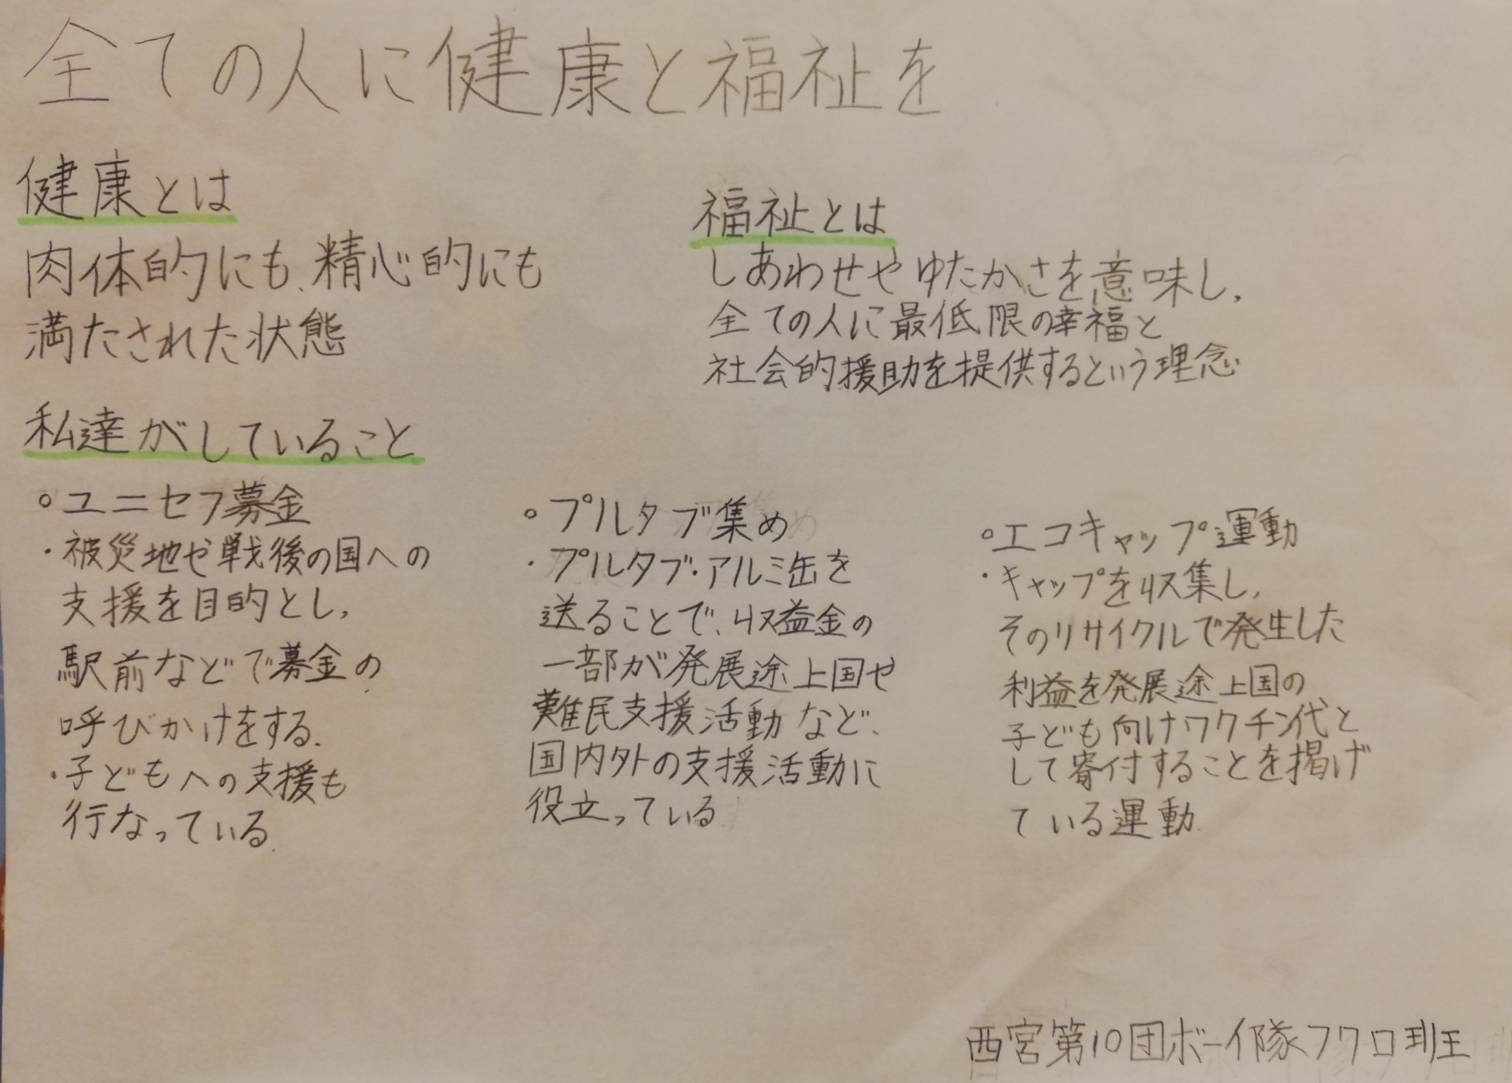 全ての人に健康と福祉を
健康とは
肉体的にも、精心的にも
満たされた状態
福祉とは
しあわせやゆたかさを意味し、
全ての人に最低限の幸福と
社会的援助を提供するという理念
私達がしていること
○ユニセフ募金
・被災地や戦後の国への
支援を目的とし、
駅前などで募金の
呼びかけをする。
・子どもへの支援も
行なっている。
○プルタブ集め
・プルタブ・アルミ缶を
送ることで、収益金の
一部が発展途上国や
難民支援活動など、
国内外の支援活動に
役立っている
○エコキャップ運動
・キャップを収集し、
そのリサイクルで発生した
利益を発展途上国の
子ども向けワクチン代と
して寄付することを掲げ
ている運動
西宮第10団ボーイ隊フクロ班